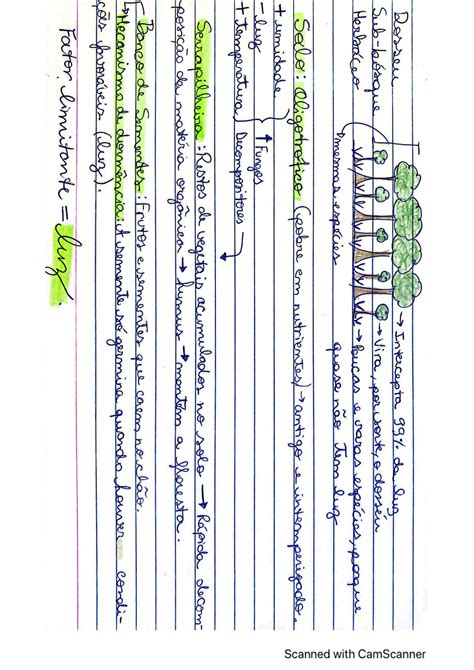 Dossel → Intercepta 99% da luz
Sub-bosque → Vira, por sorte, o dossel
Herbáceo → Poucas e raras espécies, porque
mesmas espécies quase não tem luz
Solo: Oligotrófico (pobre em nutrientes) → antigo e intemperizado.
+ umidade
- luz
+ temperatura
↑ Fungos
Decompositores
Serrapilheira: Restos de vegetais acumulados no solo → Rápida decom-
posição de matéria orgânica → humus → mantém a floresta.
Banco de Sementes: Frutos e sementes que caem no chão.
Mecanismo de dormência: A semente só germina quando houver condi-
ções favoráveis (luz).
Fator limitante = luz.
Scanned with CamScanner